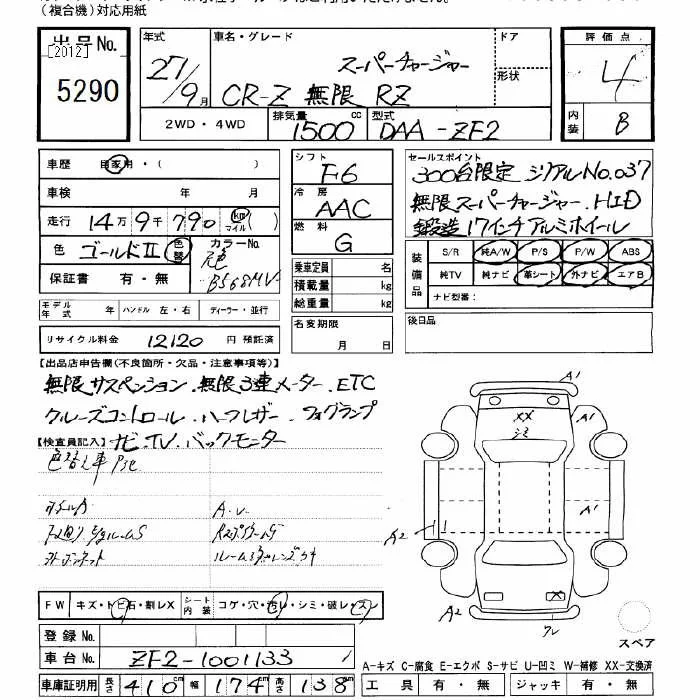 (複合機)対応用紙
出品No.
[2012]
5290
年式 車名・グレード ドア
スーパーチャージャー
27/9月 CR-Z 無限 RZ
形状
2WD・4WD 排気量 1500 cc 型式 DAA-ZF2
評価点
4
内装 B
車歴 自家用・( )
車検 年 月
走行 14万9千790 km マイル ( )
色 ゴールドⅡ 色替 カラーNo.
B568MV
保証書 有・無
モデル年式 年 ハンドル 左・右 ディーラー・並行
リサイクル料金 12120 円 預託済
シフト F6
冷房 AAC
燃料 G
乗車定員 名
積載量 kg
総重量 kg
名変期限
月 日
セールスポイント
300台限定 シリアルNo.037
無限スーパーチャージャー、HID
鍛造17インチアルミホイール
装備品 S/R 純A/W P/S P/W ABS
純TV 純ナビ 革シート 外ナビ エアB
ナビ型番:
後日品
【出品店申告欄(不良箇所・欠品・注意事項等)】
無限サスペンション.無限3連メーター.ETC
クルーズコントロール.ハーフレザー.フォグランプ
【検査員記入】ナビ.TV.バックモニター
色替え車
FW キズ・トビ石・割レX シート内装 コゲ・穴・汚レ・シミ・破レ・スレ
登録No.
車台No. ZF2-1001133
車庫証明用 長さ 410cm 幅 174cm 高さ 138cm
A1
XX
A1
A2
A2
スペア
A-キズ C-腐食 E-エクボ S-サビ U-凹ミ W-補修 XX-交換済
工具 有・無 ジャッキ 有・無